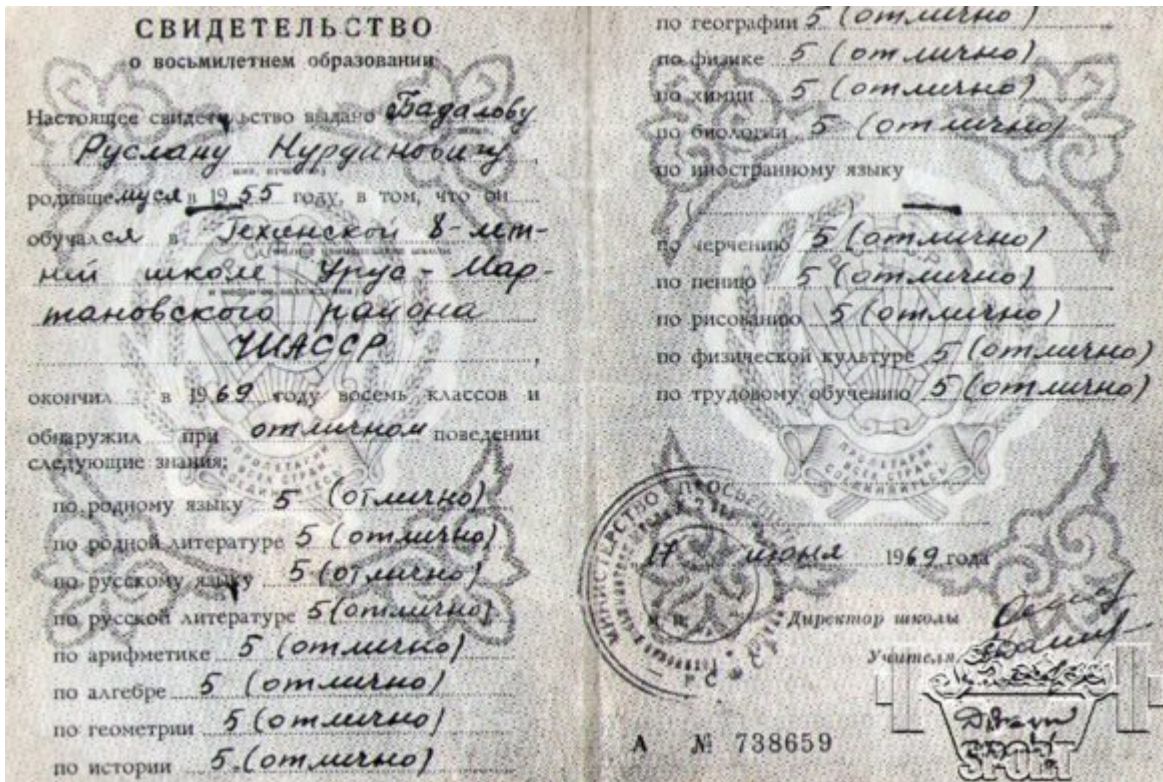 СВИДЕТЕЛЬСТВО
о восьмилетнем образовании
Настоящее свидетельство выдано Бадалову
Руслану Нурдиновичу
родившемуся в 1955 году, в том, что он
обучался в Гехинской 8-лет-
ней школе Урус-Мар-
тановского района
ЧИАССР
окончил в 1969 году восемь классов и
обнаружил при отличном поведении
следующие знания:
по родному языку 5 (отлично)
по родной литературе 5 (отлично)
по русскому языку 5 (отлично)
по русской литературе 5 (отлично)
по арифметике 5 (отлично)
по алгебре 5 (отлично)
по геометрии 5 (отлично)
по истории 5 (отлично)
по географии 5 (отлично)
по физике 5 (отлично)
по химии 5 (отлично)
по биологии 5 (отлично)
по иностранному языку
( ) —
по черчению 5 (отлично)
по пению 5 (отлично)
по рисованию 5 (отлично)
по физической культуре 5 (отлично)
по трудовому обучению 5 (отлично)
ПРОЛЕТАРИИ ВСЕХ СТРАН СОЕДИНЯЙТЕСЬ
ПРОЛЕТАРИИ ВСЕХ СТРАН СОЕДИНЯЙТЕСЬ
МИНИСТЕРСТВО ПРОСВЕЩЕНИЯ
июня 1969 года
М. П.
Директор школы
Учителя
А № 738659
SPORT